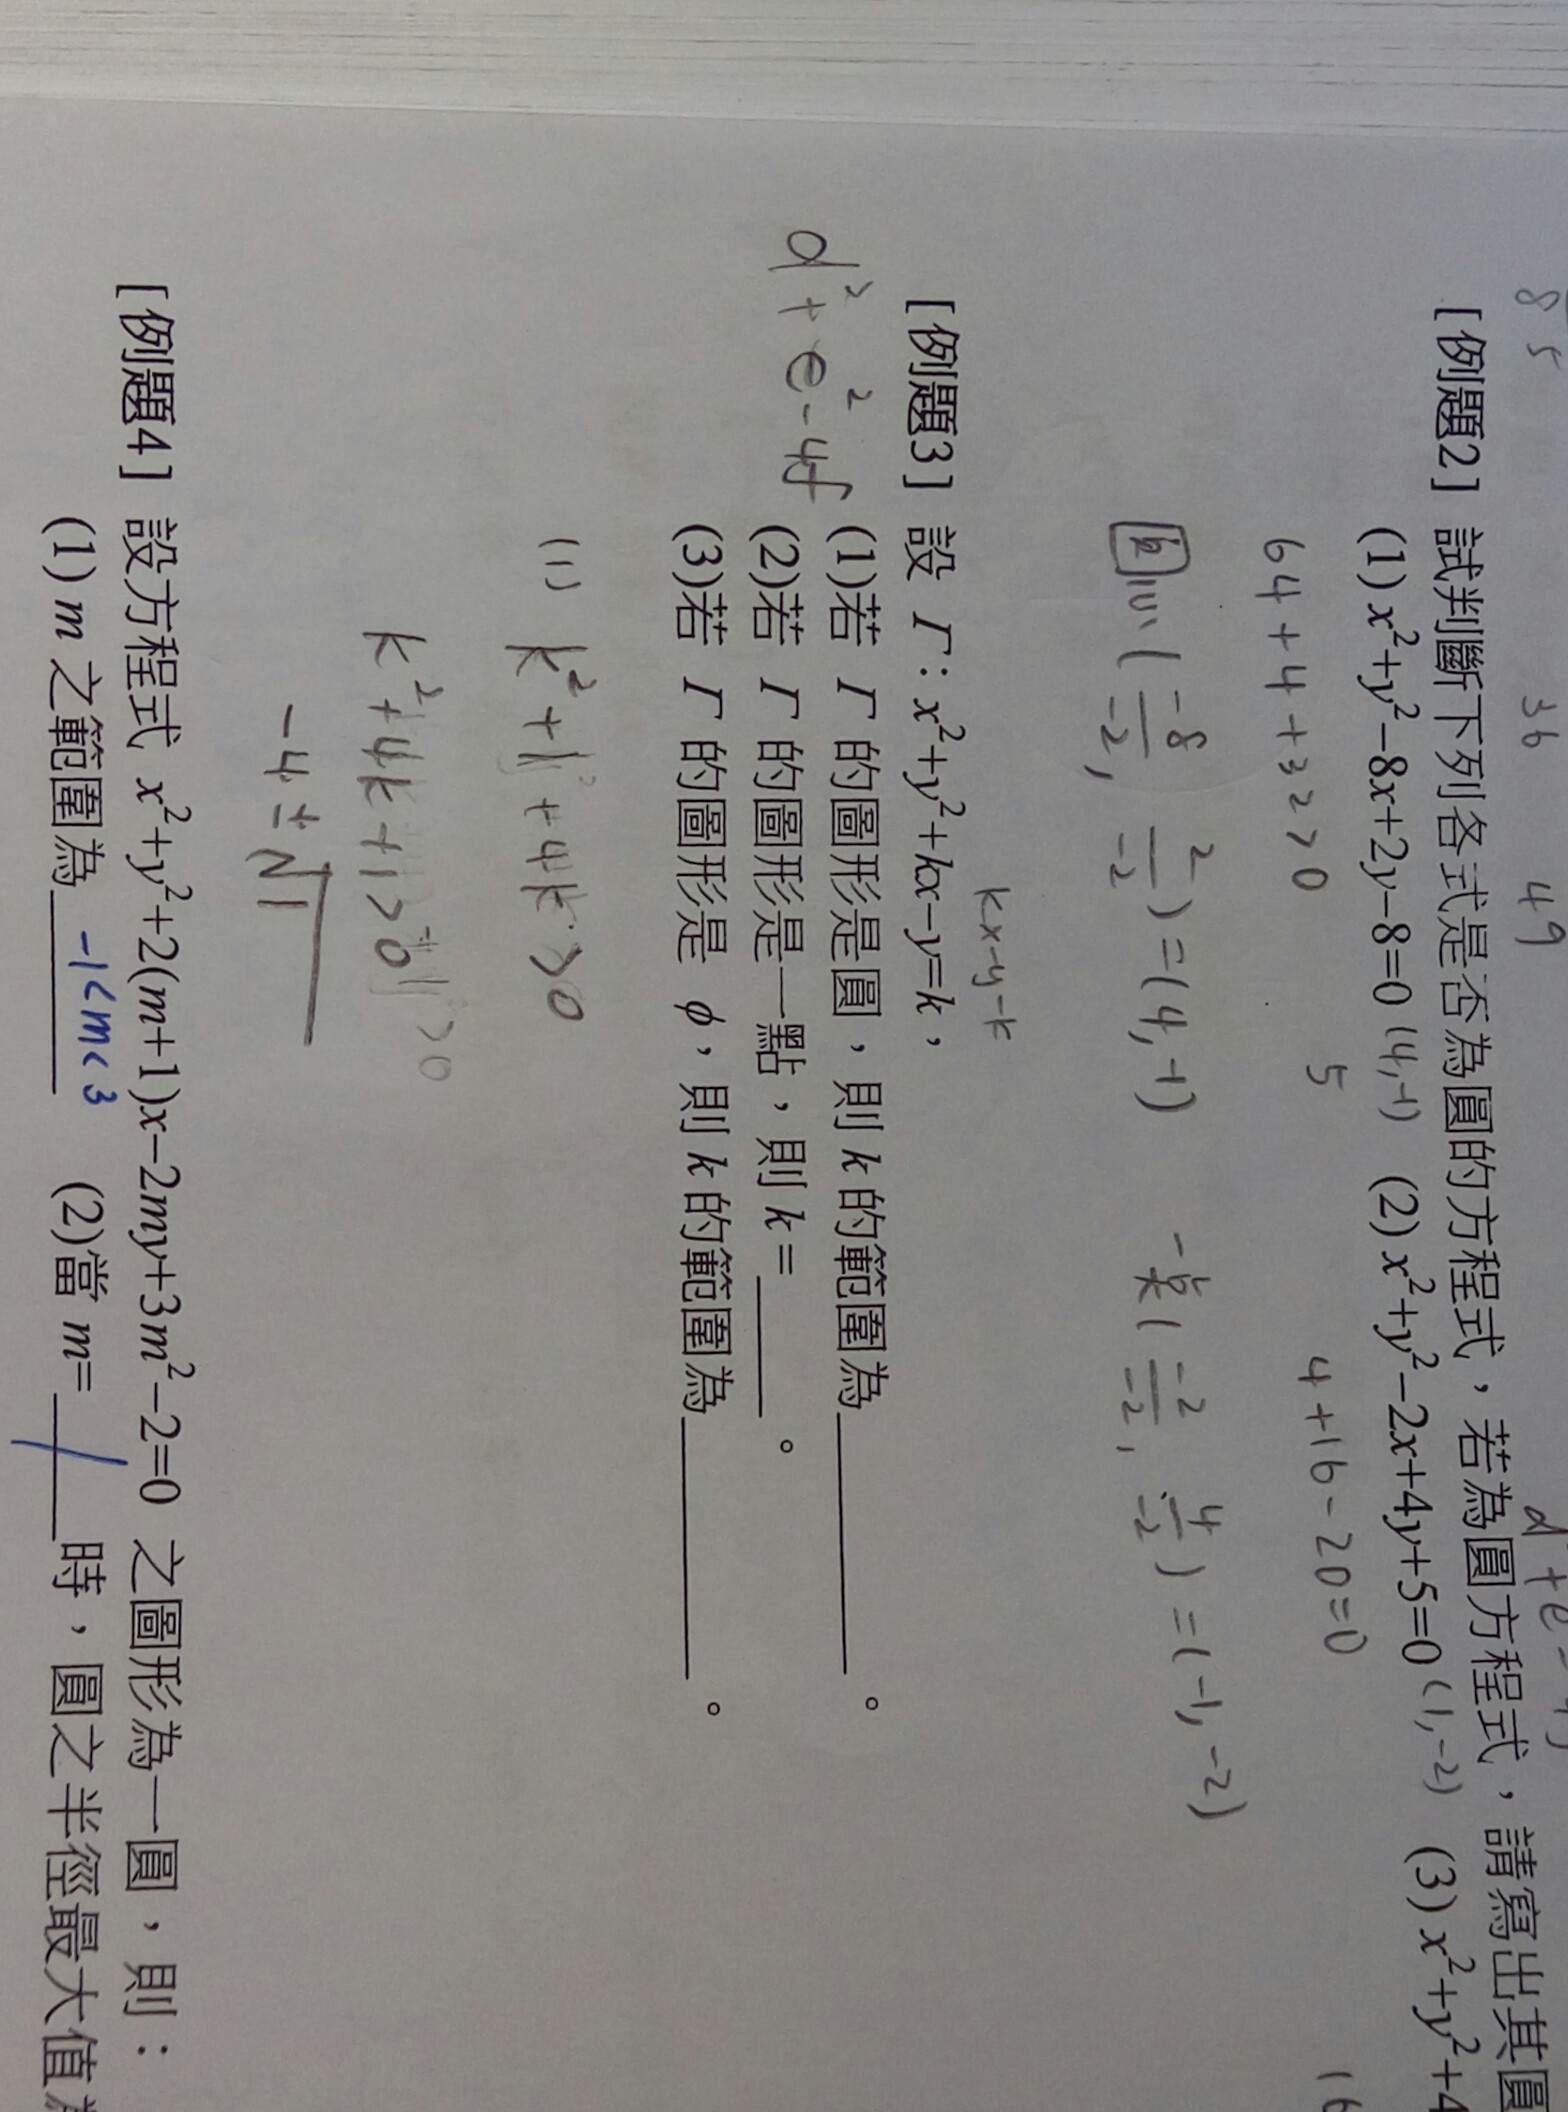 85 36 49 d+e-4
[例題2] 試判斷下列各式是否為圓的方程式，若為圓方程式，請寫出其圓
(1) x²+y²−8x+2y−8=0 (4,-1) (2) x²+y²−2x+4y+5=0 (1,-2) (3) x²+y²+4
64+4+32>0 5 4+16-20=0 16
圓心(-8/-2, 2/-2)=(4,-1) (-2/-2, 4/-2)=(-1,-2)
kx-y-k
[例題3] 設 Γ: x²+y²+kx−y=k，
(1)若 Γ 的圖形是圓，則 k 的範圍為________。
d²+e²-4f
(2)若 Γ 的圖形是一點，則 k=________。
(3)若 Γ 的圖形是 ϕ，則 k 的範圍為________。
(1) k²+1²+4k>0
k²+4k+1>0
-4±√
[例題4] 設方程式 x²+y²+2(m+1)x−2my+3m²−2=0 之圖形為一圓，則：
(1) m 之範圍為 -1<m<3 (2)當 m= 1 時，圓之半徑最大值